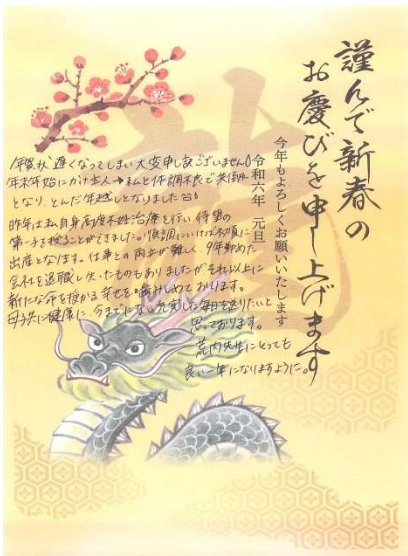 謹んで新春の
お慶びを申し上げます
今年もよろしくお願いいたします
令和六年 元旦
龍
年賀状遅くなってしまい大変申し訳ございません!
年末年始にかけ主人→私と体調不良で共倒れ
となり、とんだ年越しとなりました
昨年は私自身高度不妊治療を行い待望の
第一子を授かることができました。順調にいけば初夏に
出産となります。仕事との両立が難しく、9年勤めた
会社を退職し失ったものもありましたがそれ以上に
新たな命を授かる幸せを噛みしめております。
母子共に健康に、今までにない充実した毎日を送りたいと
思っております。
荒内先生にとっても
良い一年になりますように。